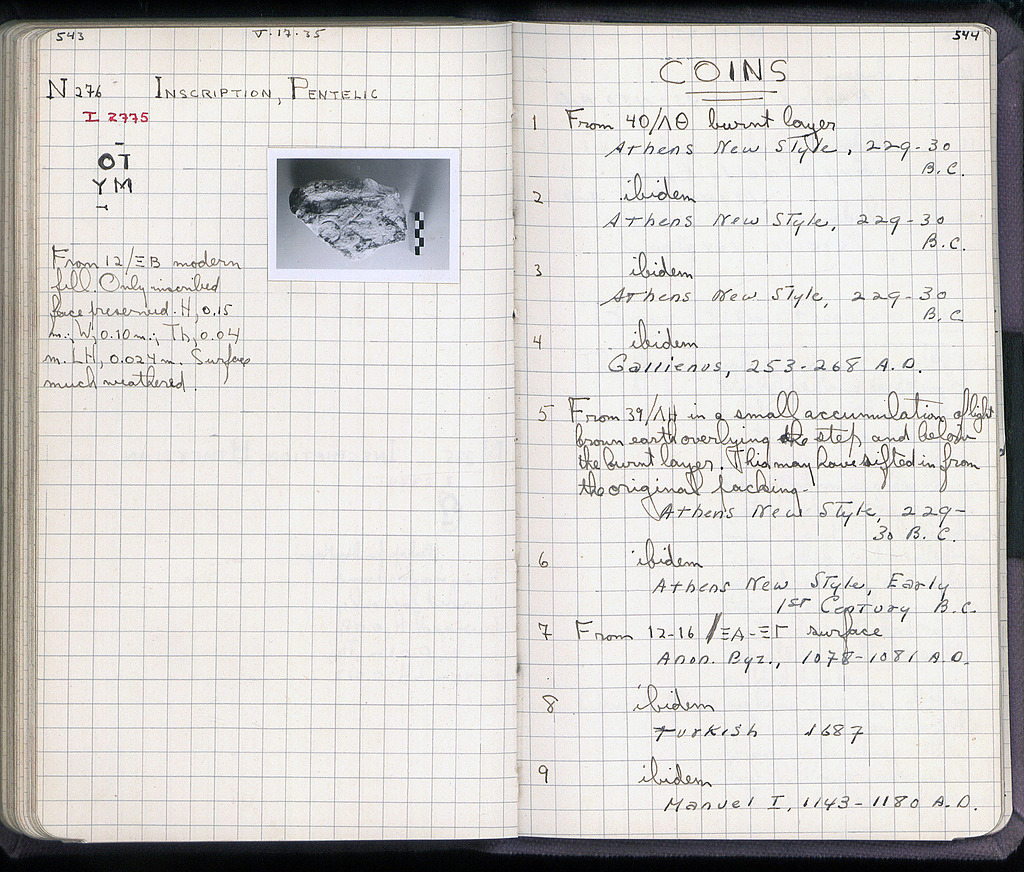 543
V.17.35
N 276 INSCRIPTION, PENTELIC
I 2775
ΟΤ
ΥΜ
From 12/ΞΒ modern
fill. Only inscribed
face preserved. H, 0.15
m.; W, 0.10 m.; Th, 0.04
m. LH, 0.024 m. Surface
much weathered.
544
COINS
1 From 40/ΛΘ burnt layer
Athens New Style, 229-30
B.C.
2 ibidem
Athens New Style, 229-30
B.C.
3 ibidem
Athens New Style, 229-30
B.C
4 ibidem
Gallienus, 253-268 A.D.
5 From 39/ΛΗ in a small accumulation of light
brown earth overlying the step and below
the burnt layer. This may have sifted in from
the original packing.
Athens New Style, 229-
30 B.C.
6 ibidem
Athens New Style, Early
1st Century B.C.
7 From 12-16/ΞΑ-ΞΓ surface
Anon. Byz., 1078-1081 A.D.
8 ibidem
Turkish 1687
9 ibidem
Manuel I, 1143-1180 A.D.